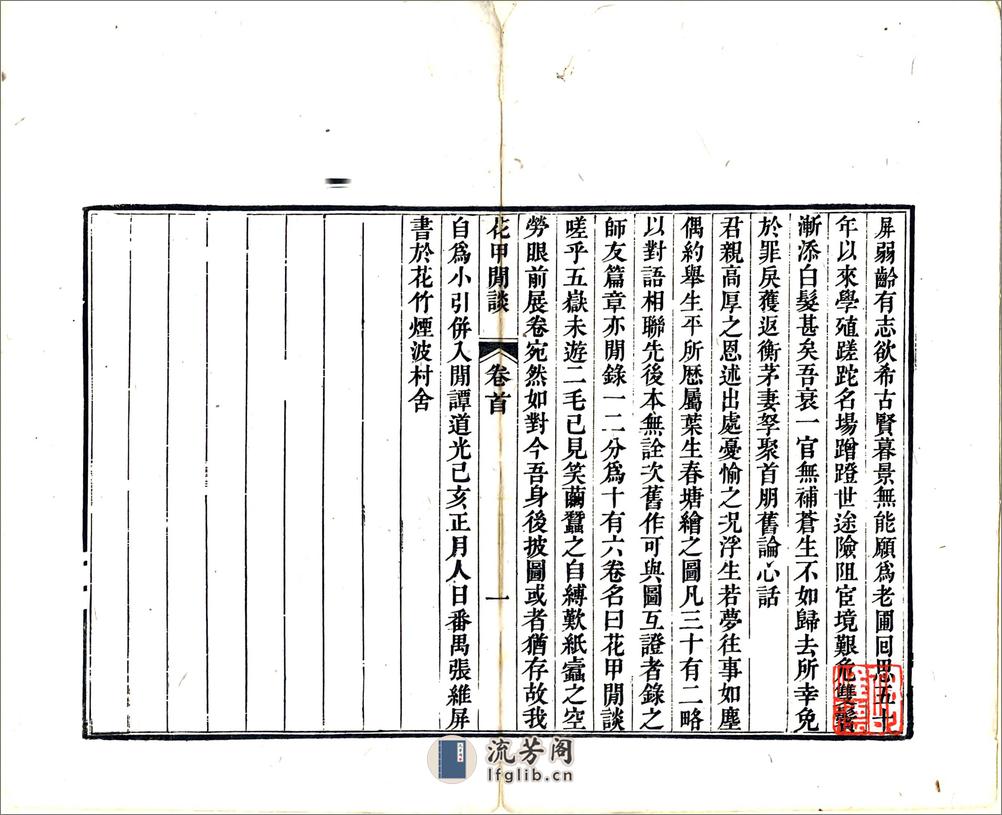 屏弱齡有志欲希古賢暮景無能願爲老圃回思五十
年以來學殖蹉跎名場蹭蹬世途險阻宦境艱危雙鬢
漸添白髮甚矣吾衰一官無補蒼生不如歸去所幸免
於罪戾獲返衡茅妻孥聚首朋舊論心話
君親高厚之恩述出處憂愉之況浮生若夢往事如塵
偶約舉生平所歷屬葉生春塘繪之圖凡三十有二略
以對語相聯先後本無詮次舊作可與圖互證者錄之
師友篇章亦閒錄一二分爲十有六卷名曰花甲閒談
嗟乎五嶽未遊二毛已見笑繭蠶之自縛歎紙蠹之空
勞眼前展卷宛然如對今吾身後披圖或者猶存故我
花甲閒談 卷首 一
自爲小引併入閒譚道光己亥正月人日番禺張維屏
書於花竹煙波村舍
流芳阁
lfglib.cn